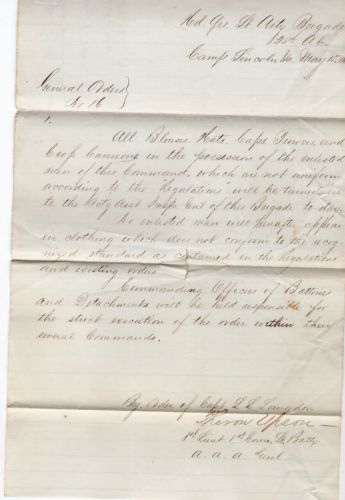 Hd. Qrs. Lt Arty Brigade
25th A.C.
Camp Lincoln Va May 15
General Orders
No 16
1.
All Blouses, Hats, Caps, Trowsers, and
in the possession of the enlisted
men of this Command, which are not uniform
according to the "Regulations" will be turned in
to the Actg Asst Insp Genl of this Brigade to day.
No enlisted man will hereafter appear
in clothing which does not conform to the recog-
nized standard as contained in the Regulations
and existing orders
Commanding Officers of Batteries
and Detachments will be held responsible for
the strict execution of the order within their
several Commands.
By Order of Capt L. L. Langdon
Theron Upson
1st Lieut 1st Conn. Lt. Batty.
A. A. A. Genl.